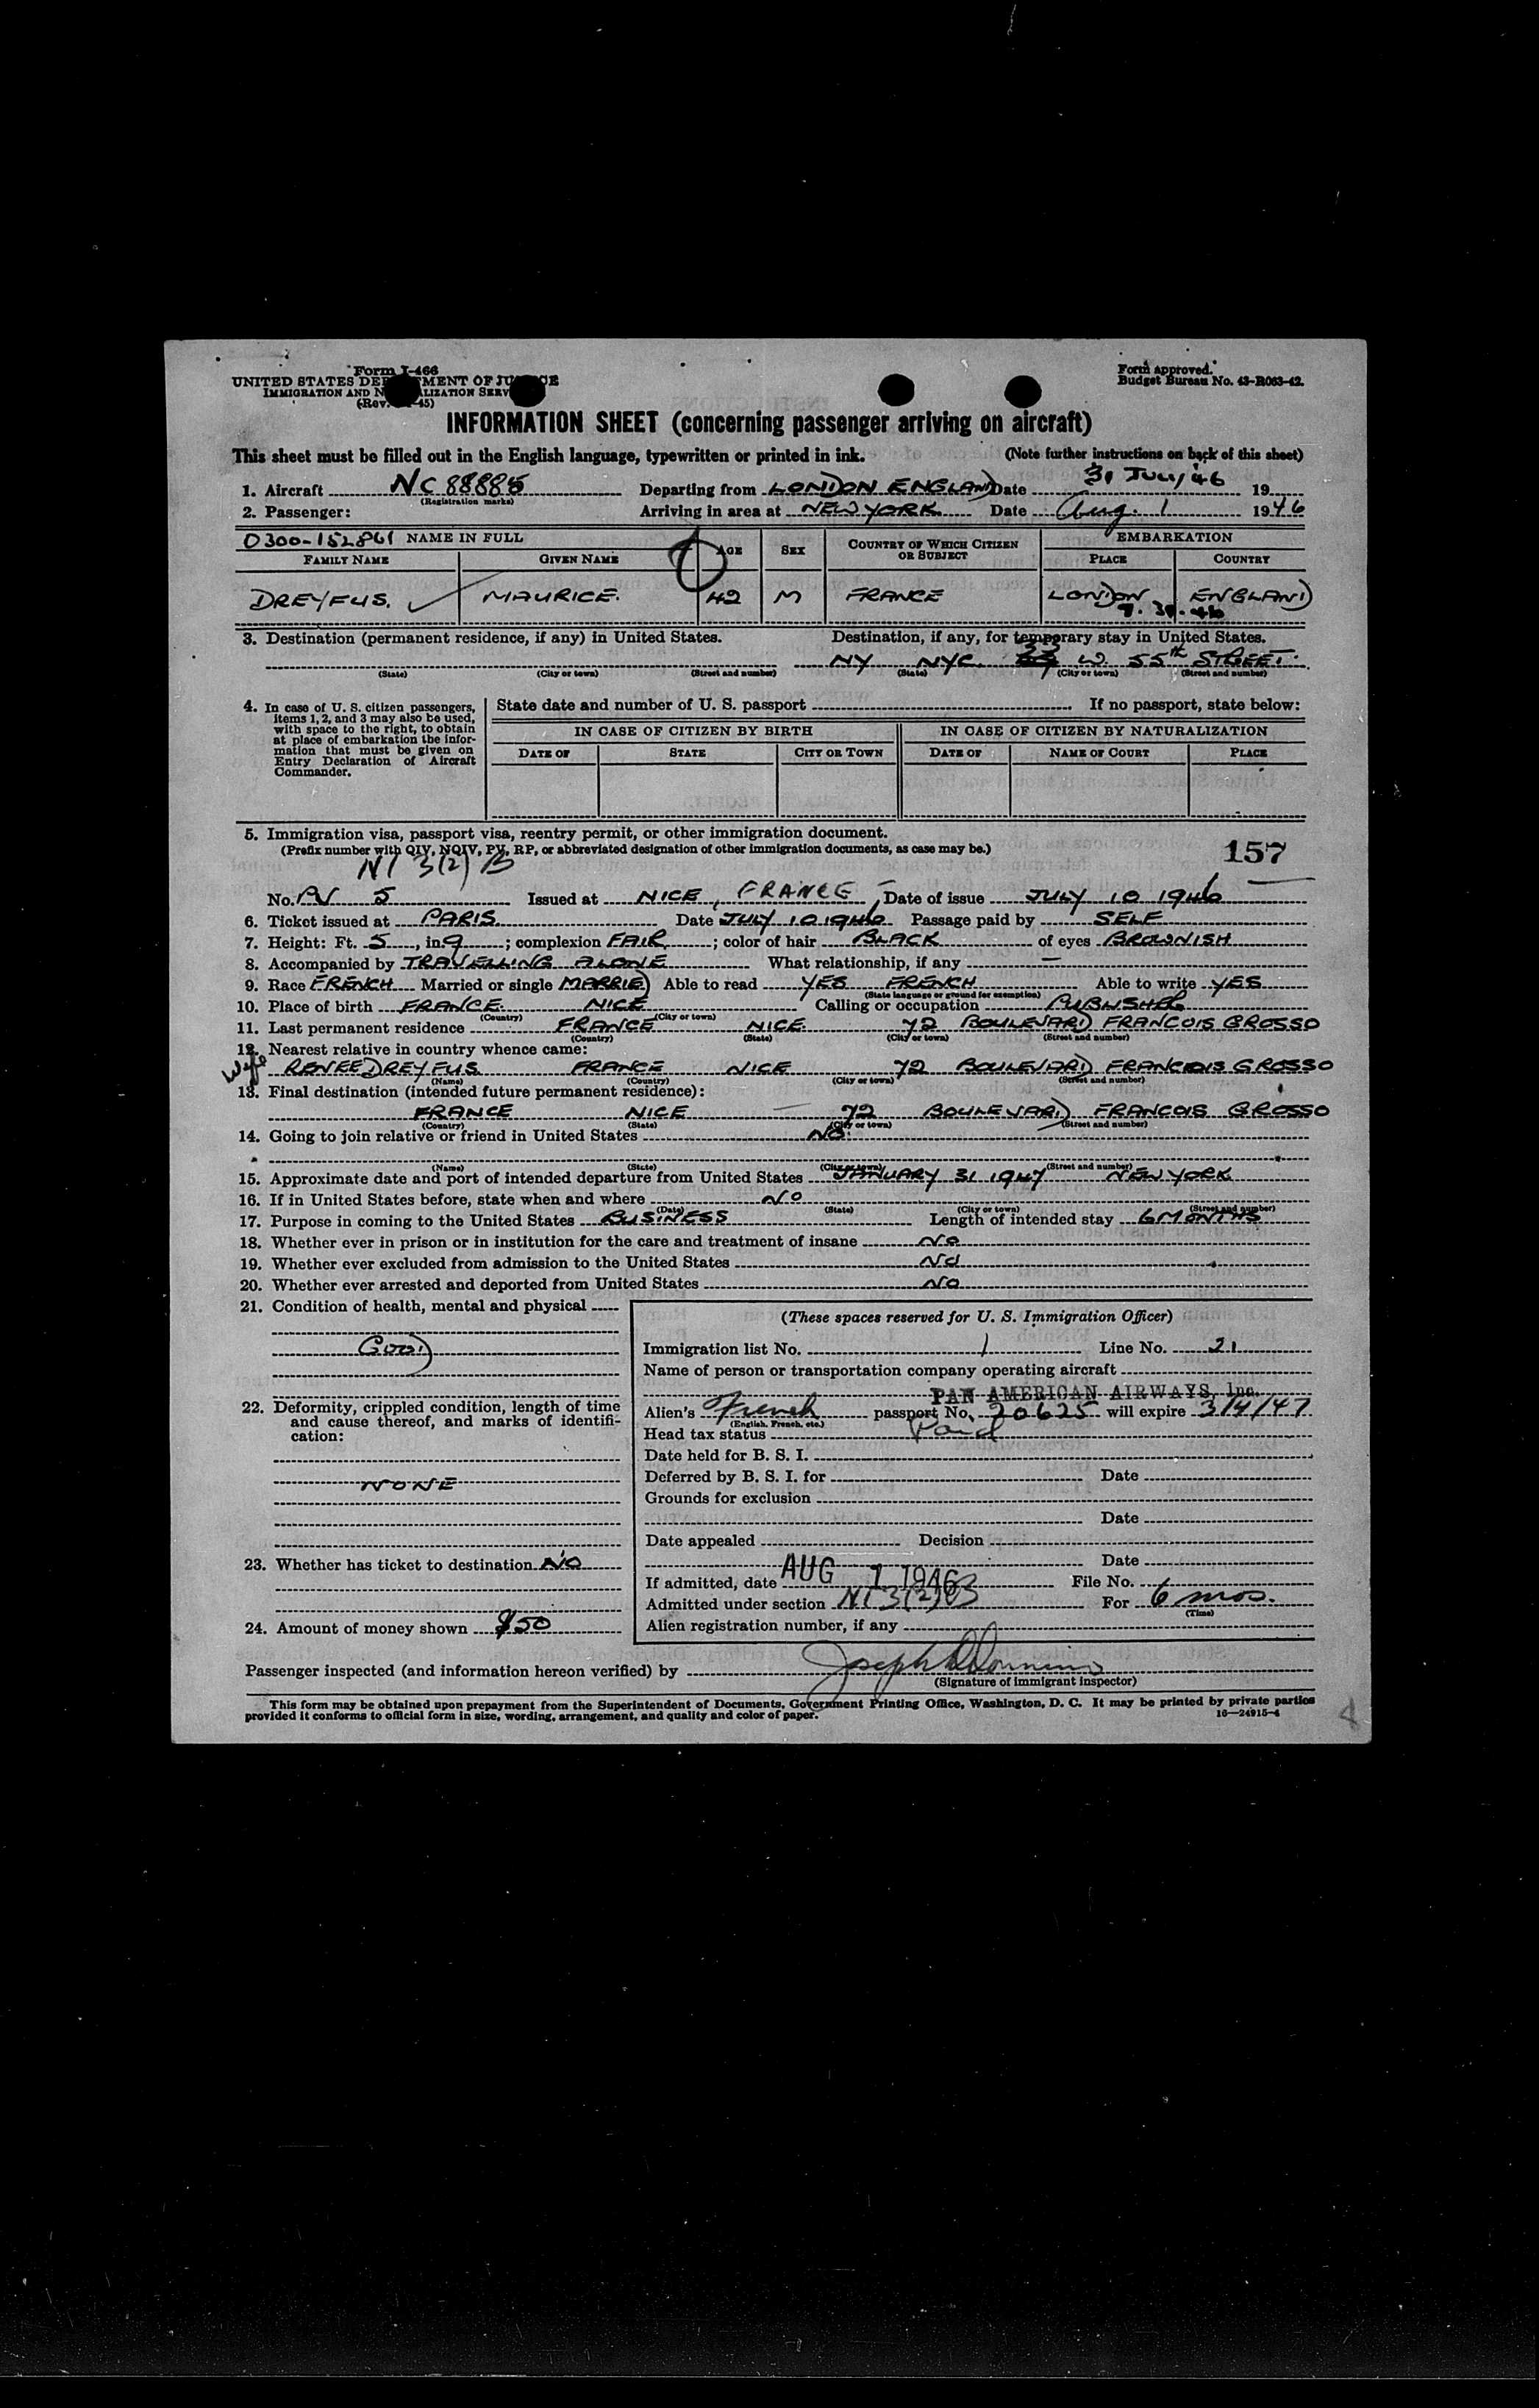 Form I-466
UNITED STATES DEPARTMENT OF JUSTICE
IMMIGRATION AND NATURALIZATION SERVICE
Form approved.
Budget Bureau No. 43-R063-42.
INFORMATION SHEET (concerning passenger arriving on aircraft)
This sheet must be filled out in the English language, typewritten or printed in ink. (Note further instructions on back of this sheet)
1. Aircraft NC 88885 Departing from LONDON ENGLAND Date 31 JULY '46 19
(Registration marks)
2. Passenger: Arriving in area at NEW YORK Date Aug. 1 1946
0300-152861 NAME IN FULL AGE SEX COUNTRY OF WHICH CITIZEN OR SUBJECT EMBARKATION
FAMILY NAME GIVEN NAME PLACE COUNTRY
DREYFUS. MAURICE. 42 M FRANCE LONDON ENGLAND
7.31.46
3. Destination (permanent residence, if any) in United States. Destination, if any, for temporary stay in United States.
NY NYC 33 W. 55th STREET.
(State) (City or town) (Street and number) (State) (City or town) (Street and number)
4. In case of U. S. citizen passengers, items 1, 2, and 3 may also be used, with space to the right, to obtain at place of embarkation the information that must be given on Entry Declaration of Aircraft Commander.
State date and number of U. S. passport If no passport, state below:
IN CASE OF CITIZEN BY BIRTH IN CASE OF CITIZEN BY NATURALIZATION
DATE OF STATE CITY OR TOWN DATE OF NAME OF COURT PLACE
5. Immigration visa, passport visa, reentry permit, or other immigration document.
(Prefix number with QIV, NQIV, PV, RP, or abbreviated designation of other immigration documents, as case may be.) 157
NI 3(2) B
No. PV 5 Issued at NICE, FRANCE Date of issue JULY 10 1946
6. Ticket issued at PARIS Date JULY 10 1946 Passage paid by SELF
7. Height: Ft. 5, in. 9; complexion FAIR; color of hair BLACK of eyes BROWNISH
8. Accompanied by TRAVELLING ALONE What relationship, if any —
9. Race FRENCH Married or single MARRIED Able to read YES FRENCH Able to write YES
(State language or ground for exemption)
10. Place of birth FRANCE NICE Calling or occupation PUBLISHER
(Country) (City or town)
11. Last permanent residence FRANCE NICE 72 BOULEVARD FRANCOIS GROSSO
(Country) (State) (City or town) (Street and number)
12. Nearest relative in country whence came:
Wife RENEE DREYFUS FRANCE NICE 72 BOULEVARD FRANCOIS GROSSO
(Name) (Country) (City or town) (Street and number)
13. Final destination (intended future permanent residence):
FRANCE NICE — 72 BOULEVARD FRANCOIS GROSSO
(Country) (State) (City or town) (Street and number)
14. Going to join relative or friend in United States NO.
(Name) (State) (City or town) (Street and number)
15. Approximate date and port of intended departure from United States JANUARY 31 1947 NEW YORK
16. If in United States before, state when and where NO
(Date) (State) (City or town) (Street and number)
17. Purpose in coming to the United States BUSINESS Length of intended stay 6 MONTHS
18. Whether ever in prison or in institution for the care and treatment of insane NO
19. Whether ever excluded from admission to the United States NO
20. Whether ever arrested and deported from United States NO
21. Condition of health, mental and physical
GOOD
22. Deformity, crippled condition, length of time and cause thereof, and marks of identification:
NONE
23. Whether has ticket to destination NO
24. Amount of money shown $50
(These spaces reserved for U. S. Immigration Officer)
Immigration list No. 1 Line No. 21
Name of person or transportation company operating aircraft
PAN AMERICAN AIRWAYS, Inc.
Alien's French passport No. 20625 will expire 3/4/47
(English, French, etc.)
Head tax status Paid
Date held for B. S. I.
Deferred by B. S. I. for Date
Grounds for exclusion
Date
Date appealed Decision
Date
If admitted, date AUG 1 1946 File No.
Admitted under section NI 3(2) B For 6 mos.
(Time)
Alien registration number, if any
Passenger inspected (and information hereon verified) by Joseph
(Signature of immigrant inspector)
This form may be obtained upon prepayment from the Superintendent of Documents, Government Printing Office, Washington, D. C. It may be printed by private parties
provided it conforms to official form in size, wording, arrangement, and quality and color of paper. 16—24915-4